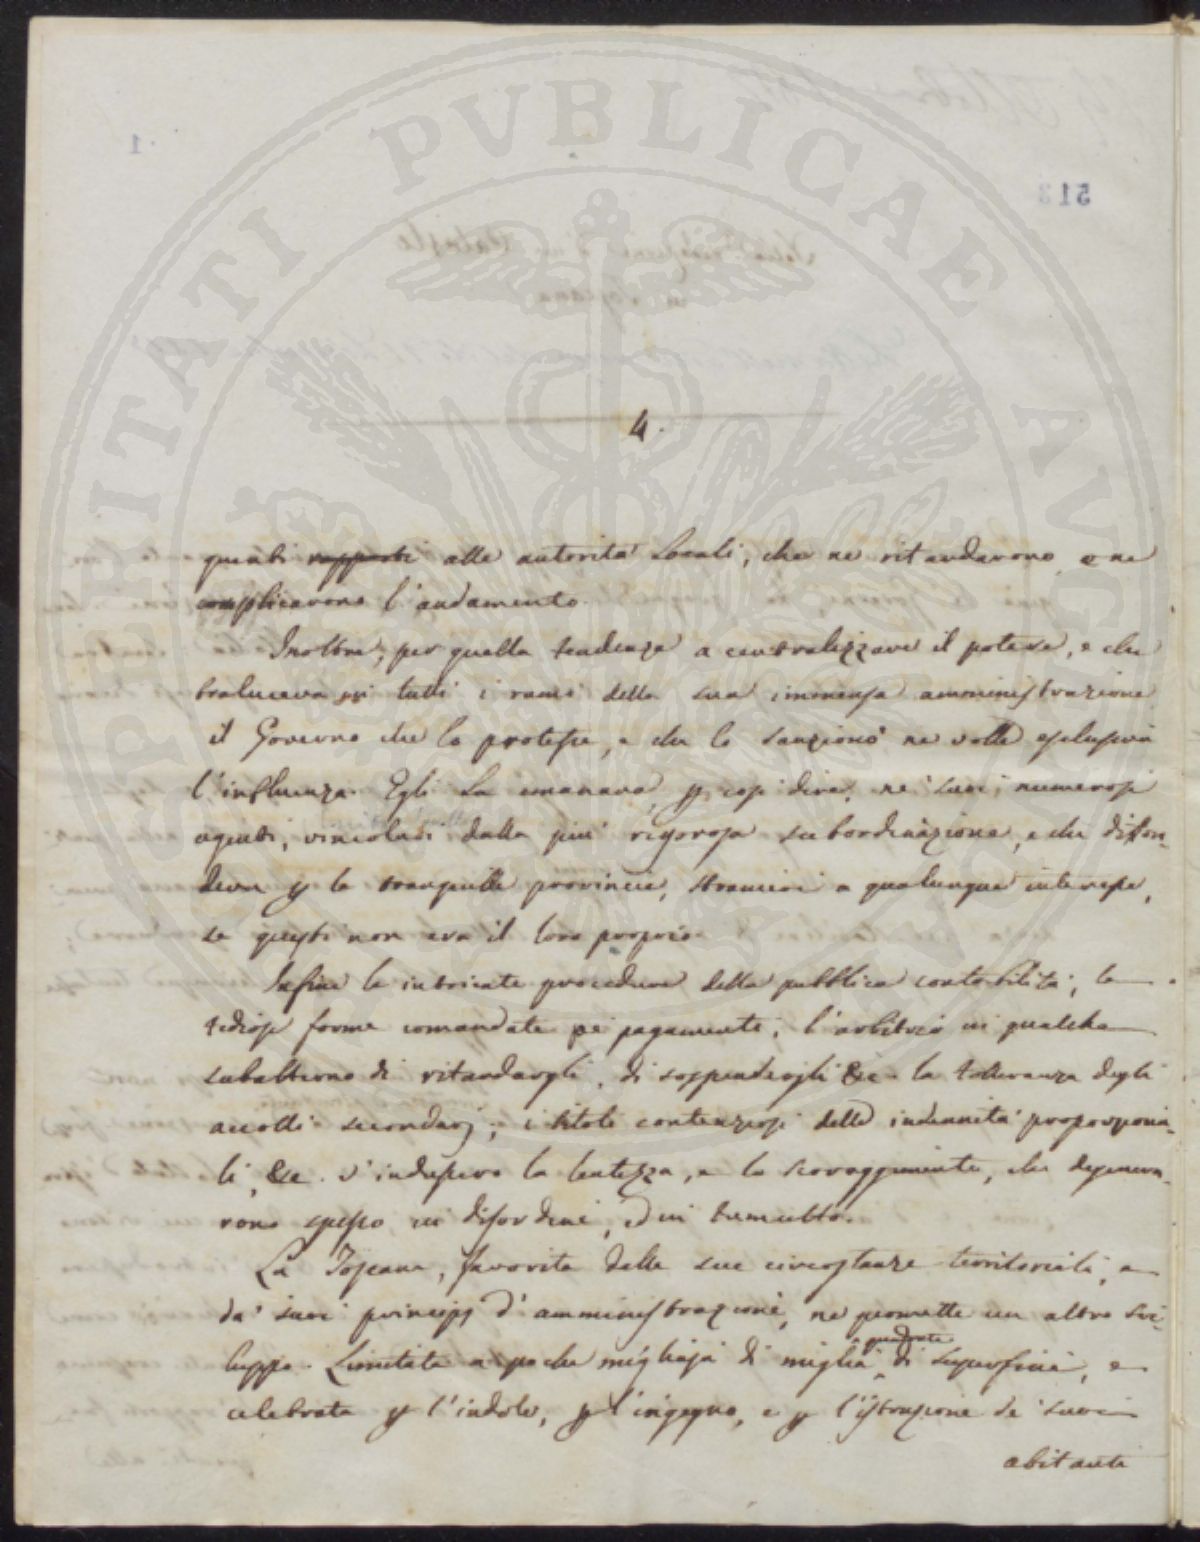 PROSPERITATI PUBLICAE AUGENDAE
513
1
4.
quenti rapporti alle autorità locali, che ne ritardarono e ne
complicarono l'andamento.
Inoltre, per quella tendenza a centralizzare il potere, e che
traluceva in tutti i rami della sua immensa amministrazione
il Governo che lo protesse, e che lo sanzionò ne volle esclusiva
l'influenza. Egli la emanava, p così dire, ne' suoi numerosi
agenti, vincolati dalla più rigorosa subordinazione, e che diffon-
deva p le tranquille provincie, stranieri a qualunque interesse,
se questi non era il loro proprio.
Infine le intricate procedure della pubblica contabilità, le
tediose forme comandate pei pagamenti, l'arbitrio in qualche
subalterno di ritardargli, di sospendergli &c. la tolleranza degli
accolli secondarj; i titoli contenziosi delle indennità proporziona-
li, &c. v'indussero la lentezza, e lo scoraggimento, che degenera-
rono spesso in disordini, ed in tumulto.
La Toscana, favorita dalle sue circostanze territoriali, e
da' suoi principj d'amministrazione, ne promette un altro svi-
luppo. Limitata a poche migliaja di miglia quadrate di superficie, e
celebrata p l'indole, p l'ingegno, e p l'istruzione de' suoi
abitanti